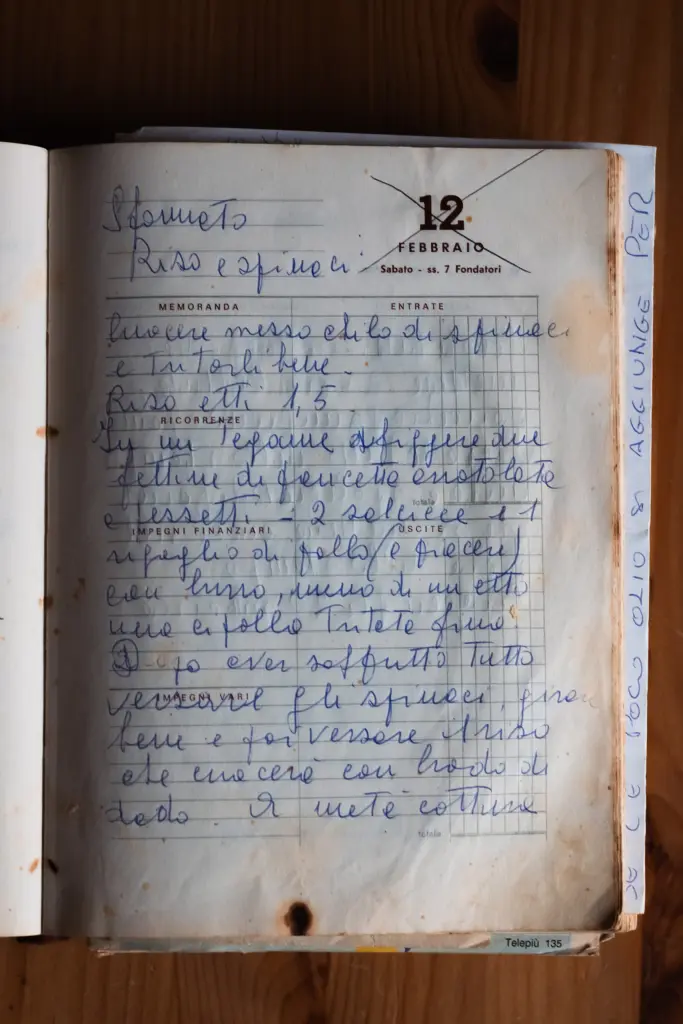 Sformato
Riso e spinaci
12
FEBBRAIO
Sabato - ss. 7 Fondatori
MEMORANDA
ENTRATE
Cuocere mezzo chilo di spinaci
e tritarli bene.
Riso etti 1,5
RICORRENZE
In un tegame friggere due
fettine di pancetta arrotolata
a pezzetti - 2 salcicce e 1
totale
IMPEGNI FINANZIARI
USCITE
di pollo (a piacere)
con burro, meno di un etto
una cipolla tritata fina
aver soffritto tutto
IMPEGNI VARI
versare gli spinaci, girare
bene e poi versare il riso
che cuocerà con brodo di
dado. A metà cottura
totale
Telepiù 135
POCO OLIO SI AGGIUNGE PER